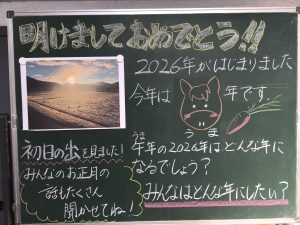 明けましておめでとう!!
2026年がはじまりました
今年は 年です
うま
初日の出を見ました!
みんなのお正月の
話もたくさん
聞かせてね!
うま
午年の2026年はどんな年に
なるでしょう?
みんなはどんな年にしたい?